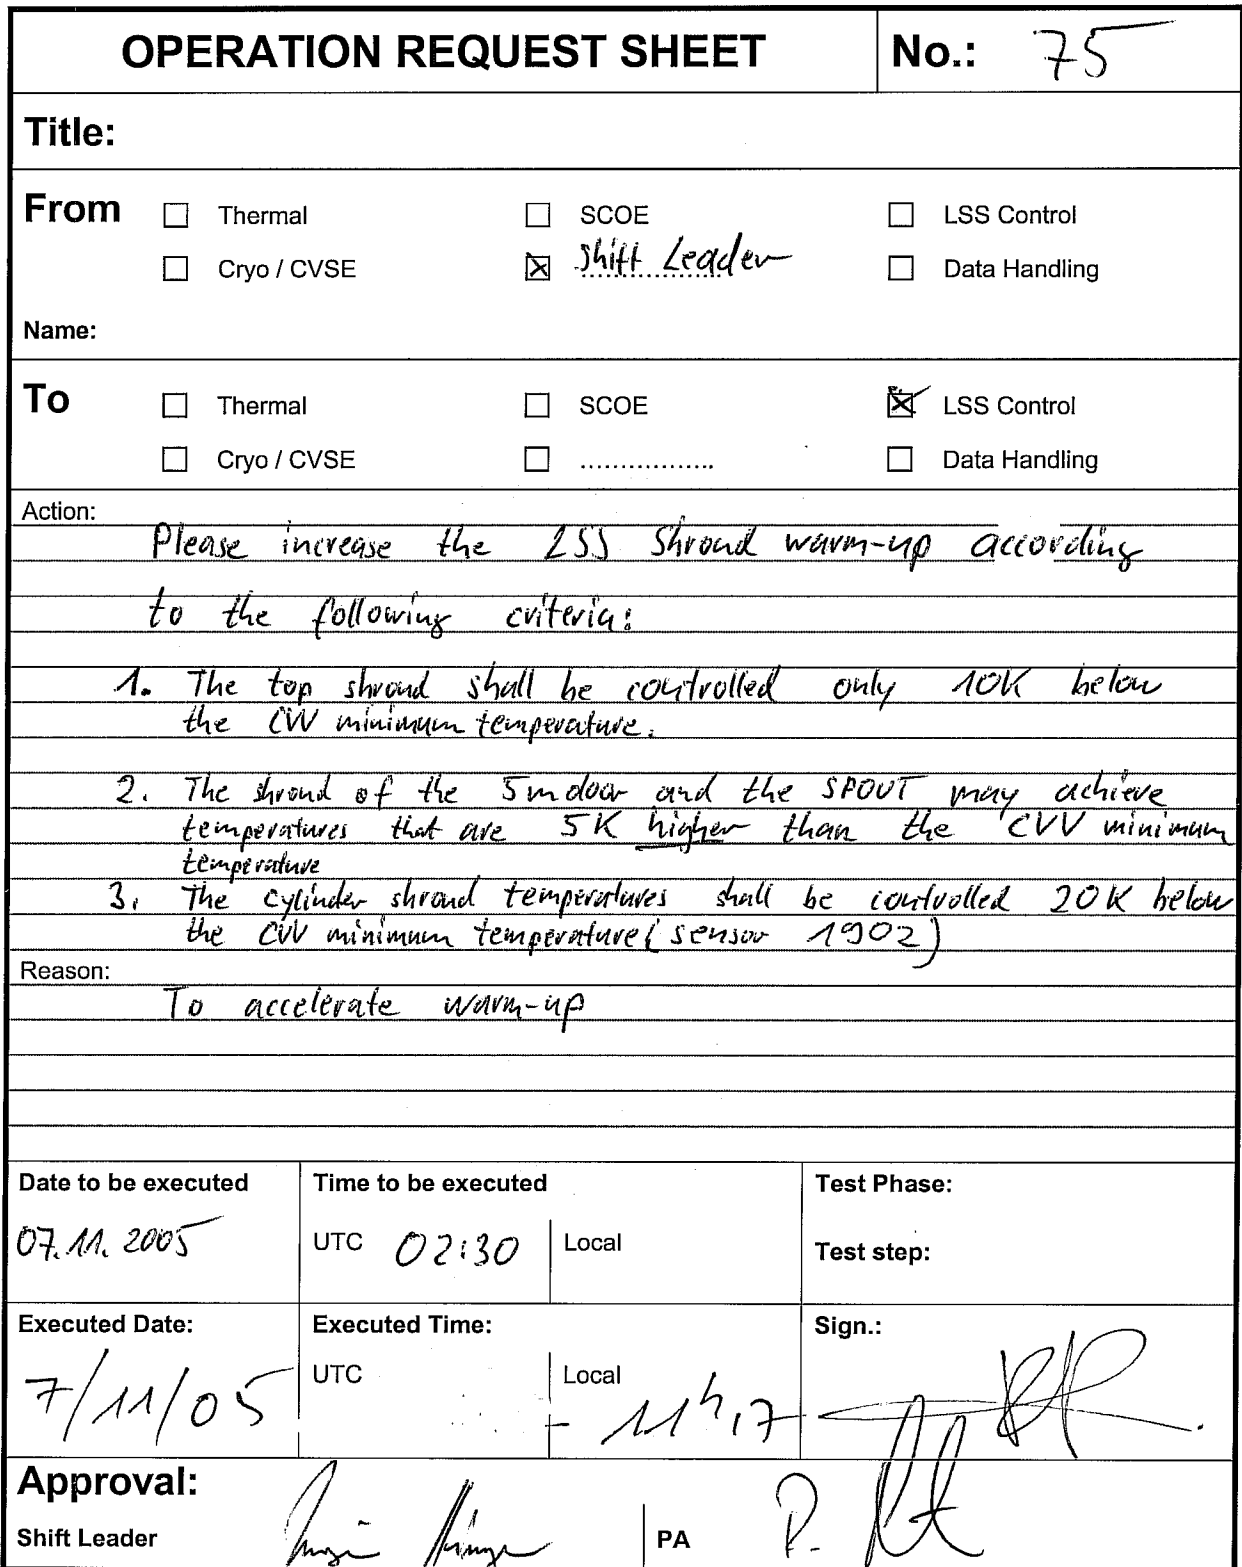 OPERATION REQUEST SHEET No.: 75
Title:
From Thermal SCOE LSS Control
Cryo / CVSE Shift Leader Data Handling
Name:
To Thermal SCOE LSS Control
Cryo / CVSE ................. Data Handling
Action:
Please increase the LSS Shroud warm-up according
to the following criteria:
1. The top shroud shall be controlled only 10K below
the CVV minimum temperature.
2. The shroud of the 5m door and the SPOUT may achieve
temperatures that are 5K higher than the CVV minimum
temperature
3. The cylinder shroud temperatures shall be controlled 20K below
the CVV minimum temperature (sensor 1902)
Reason:
To accelerate warm-up
Date to be executed Time to be executed Test Phase:
07.11.2005 UTC 02:30 Local
Test step:
Executed Date: Executed Time: Sign.:
7/11/05 UTC Local 11h17
Approval:
Shift Leader PA